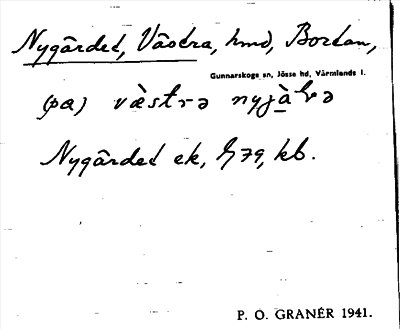 Nygärdet, Västra, hmd, Bordan,
Gunnarskogs sn, Jösse hd, Värmlands l.
(på) västrə nyjà
Nygärdet ek, 79, kb.
P. O. GRANÉR 1941.